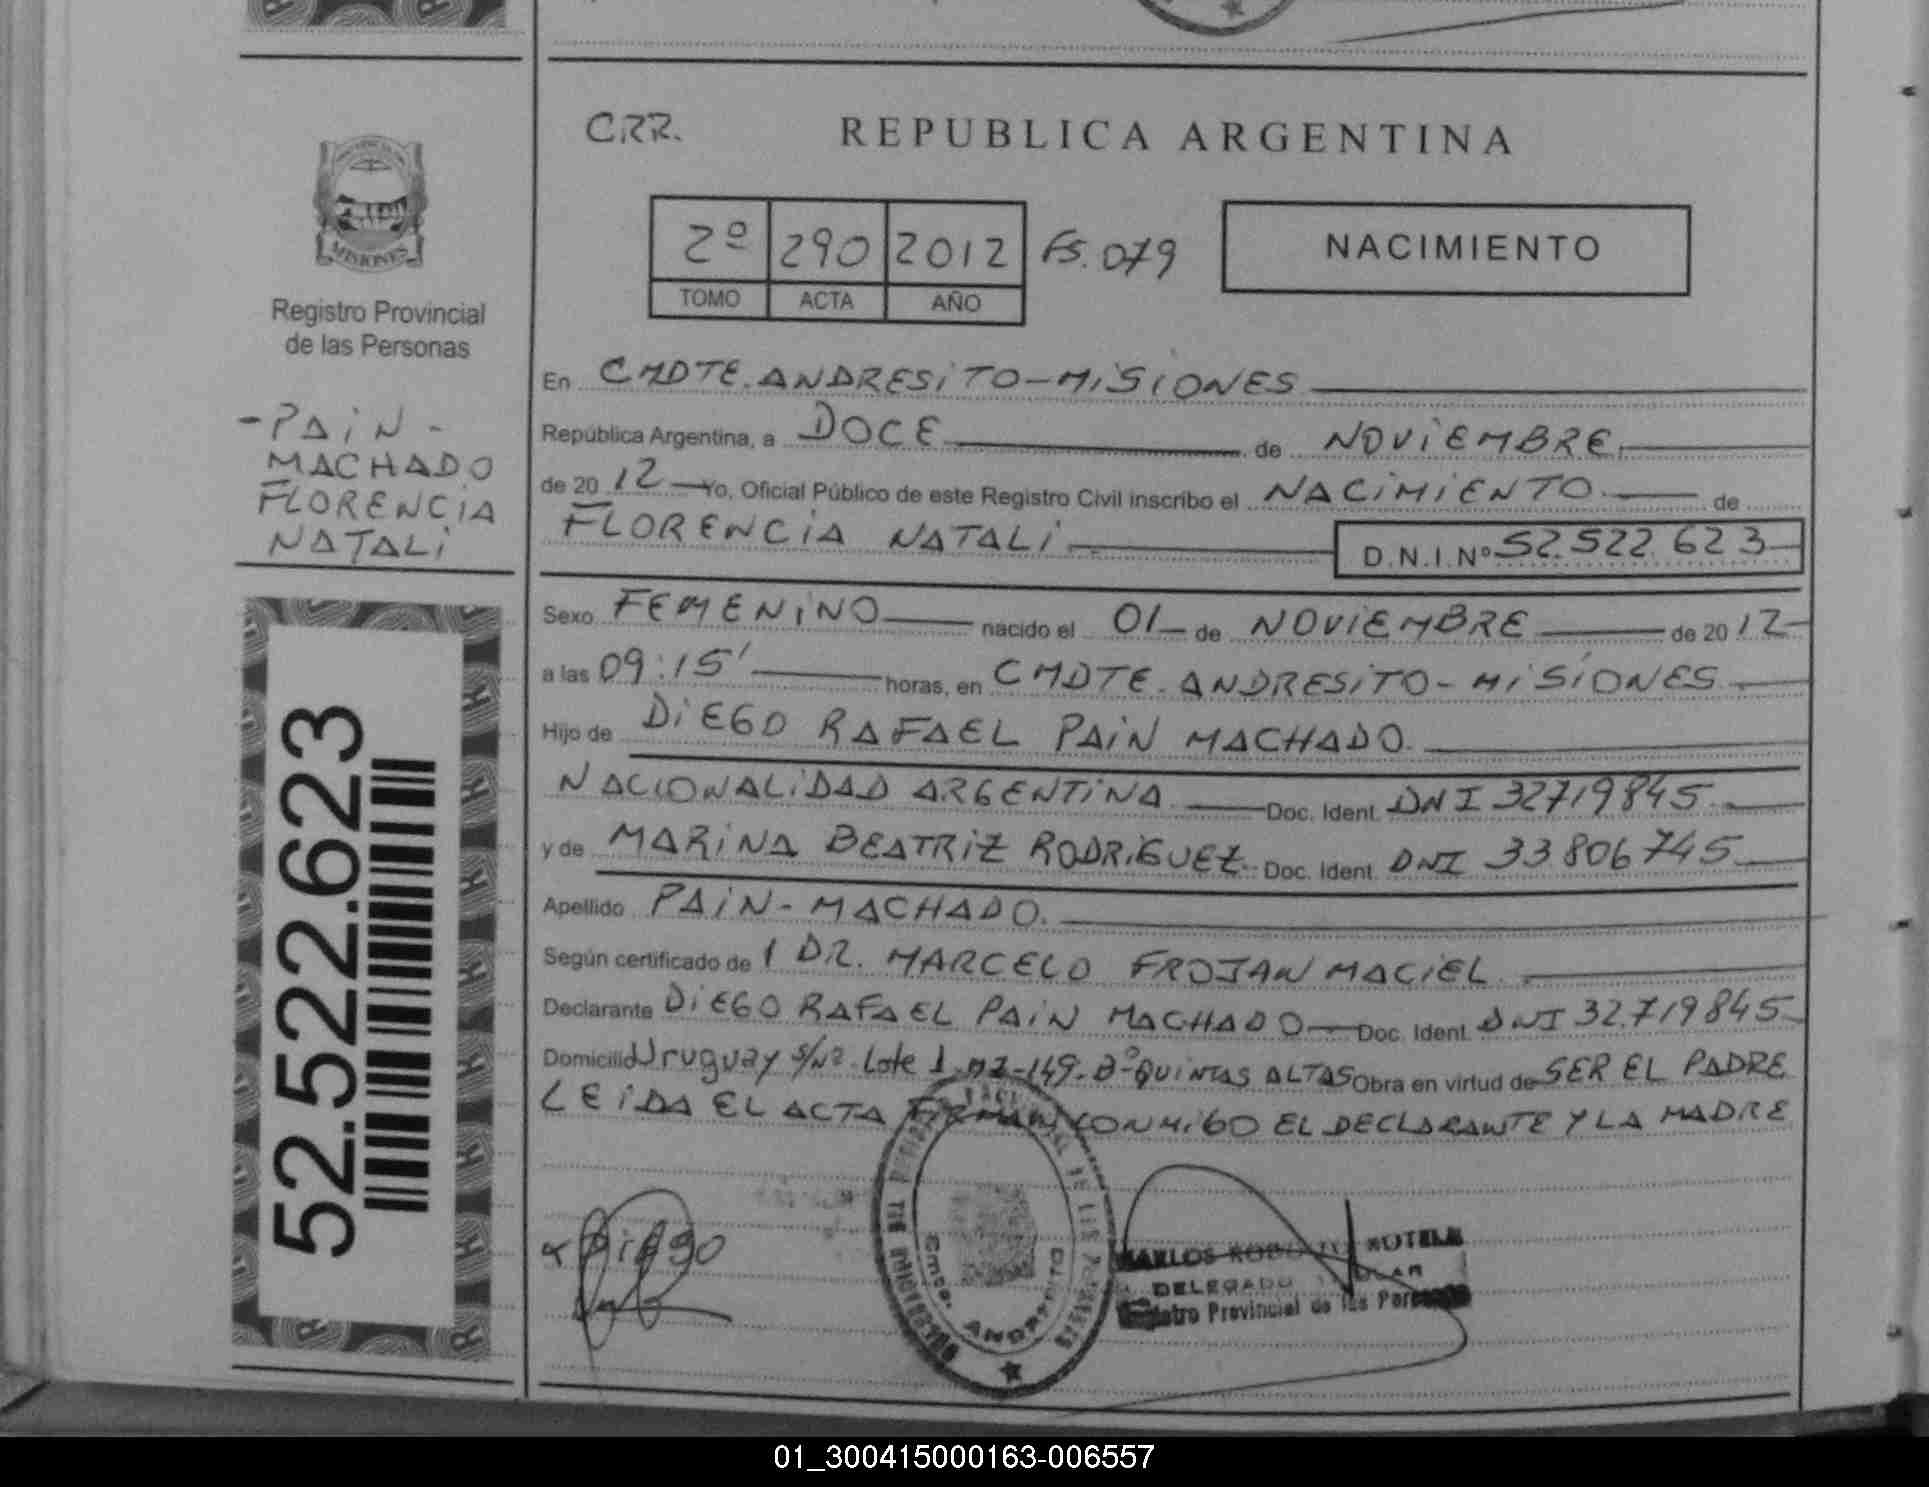 C.R.R.
REPUBLICA ARGENTINA
2º 290 2012 Fs. 079
TOMO ACTA AÑO
NACIMIENTO
MISIONES
Registro Provincial
de las Personas
- PAIN -
MACHADO
FLORENCIA
NATALI
52.522.623
En CMDTE. ANDRESITO - MISIONES
República Argentina, a DOCE de NOVIEMBRE
de 2012 Yo, Oficial Público de este Registro Civil inscribo el NACIMIENTO de
FLORENCIA NATALI D.N.I.Nº 52.522.623
Sexo FEMENINO nacido el 01 de NOVIEMBRE de 2012
a las 09:15' horas, en CMDTE. ANDRESITO - MISIONES
Hijo de DIEGO RAFAEL PAIN MACHADO.
NACIONALIDAD ARGENTINA Doc. Ident. DNI 32719845
y de MARINA BEATRIZ RODRIGUEZ Doc. Ident. DNI 33806745
Apellido PAIN - MACHADO.
Según certificado de 1 DR. MARCELO FROJAN MACIEL
Declarante DIEGO RAFAEL PAIN MACHADO Doc. Ident. DNI 32.719845
Domicilio Uruguay s/nº. Lote 1. mz-149. Bº QUINTAS ALTAS Obra en virtud de SER EL PADRE
LEIDA EL ACTA FIRMAN CONMIGO EL DECLARANTE Y LA MADRE
Diego
Cmdo. ANDRESITO
DELEGADO
Registro Provincial de las Personas
01_300415000163-006557